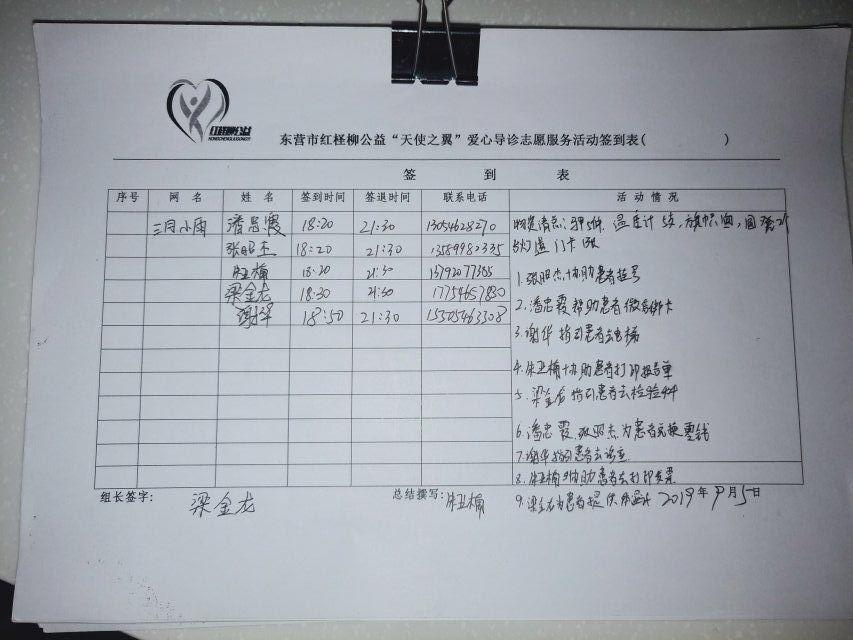 红柽柳公益
东营市红柽柳公益“天使之翼”爱心导诊志愿服务活动签到表( )
签 到 表
序号 网 名 姓 名 签到时间 签退时间 联系电话 活 动 情 况
三月小雨 潘忠霞 18:20 21:30 13054628270
张昭杰 18:20 21:30
朱亚楠 18:20 21:30
梁金龙 18:30 21:30 17754657830
谢华 18:50 21:30 15305463308
1.张昭杰协助患者挂号
2.潘忠霞帮助患者微信绑卡
3.谢华指引患者去电梯
4.朱亚楠协助患者打印报告单
5.梁金龙指引患者去检验科
6.潘忠霞.张昭杰为患者兑换零钱
7.谢华指引患者去诊室
8.朱亚楠协助患者去打印发票
9.梁金龙为患者提供
组长签字: 梁金龙 总结撰写: 朱亚楠 2019年9月5日